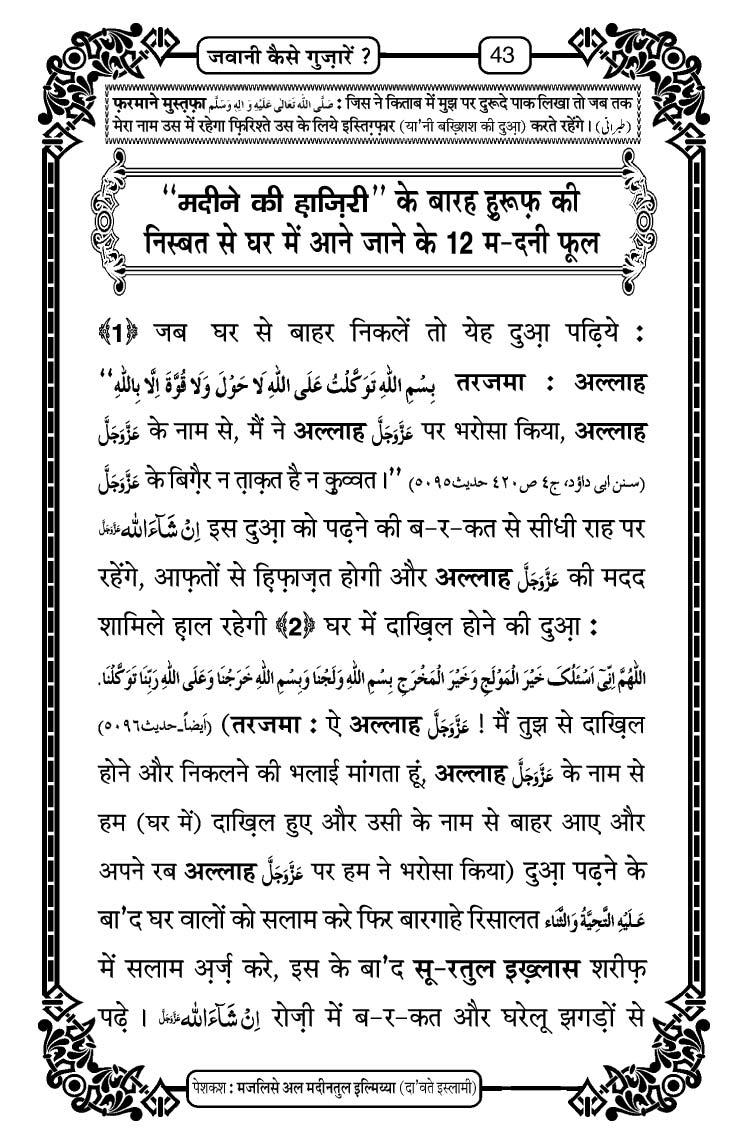 जवानी कैसे गुज़ारें ?
43
फ़रमाने मुस्त़फ़ा صَلَّى اللهُ تَعَالٰى عَلَيْهِ وَاٰلِهٖ وَسَلَّم : जिस ने किताब में मुझ पर दुरूदे पाक लिखा तो जब तक
मेरा नाम उस में रहेगा फ़िरिश्ते उस के लिये इस्तिग़्फ़ार (या'नी बख़्शिश की दुआ़) करते रहेंगे। (طبرانی)
“मदीने की ह़ाज़िरी” के बारह हु़रूफ़ की
निस्बत से घर में आने जाने के 12 म-दनी फूल
﴾1﴿ जब घर से बाहर निकलें तो येह दुआ़ पढ़िये :
“بِسْمِ اللهِ تَوَكَّلْتُ عَلَى اللهِ لَا حَوْلَ وَلَا قُوَّةَ اِلَّا بِاللهِ तरजमा : अल्लाह
عَزَّوَجَلَّ के नाम से, मैं ने अल्लाह عَزَّوَجَلَّ पर भरोसा किया, अल्लाह
عَزَّوَجَلَّ के बिग़ैर न त़ाक़त है न क़ुव्वत।” (سنن ابی داؤد، ج٤ ص٤٢٠ حدیث٥٠٩٥)
اِنْ شَآءَاللہ عَزَّوَجَلَّ इस दुआ़ को पढ़ने की ब-र-कत से सीधी राह पर
रहेंगे, आफ़तों से ह़िफ़ाज़त होगी और अल्लाह عَزَّوَجَلَّ की मदद
शामिले ह़ाल रहेगी ﴾2﴿ घर में दाख़िल होने की दुआ़ :
اَللّٰهُمَّ اِنِّیْ اَسْئَلُکَ خَيْرَ الْمَوْلَجِ وَخَيْرَ الْمَخْرَجِ بِسْمِ اللهِ وَلَجْنَا وَبِسْمِ اللهِ خَرَجْنَا وَعَلَى اللهِ رَبِّنَا تَوَكَّلْنَا.
(اَیضاً۔حدیث٥٠٩٦) (तरजमा : ऐ अल्लाह عَزَّوَجَلَّ ! मैं तुझ से दाख़िल
होने और निकलने की भलाई मांगता हूं, अल्लाह عَزَّوَجَلَّ के नाम से
हम (घर में) दाख़िल हुए और उसी के नाम से बाहर आए और
अपने रब अल्लाह عَزَّوَجَلَّ पर हम ने भरोसा किया) दुआ़ पढ़ने के
बा'द घर वालों को सलाम करे फिर बारगाहे रिसालत عَلَيْهِ التَّحِيَّةُ وَالثَّنَاء
में सलाम अ़र्ज़ करे, इस के बा'द सू-रतुल इख़्लास शरीफ़
पढ़े। اِنْ شَآءَاللہ عَزَّوَجَلَّ रोज़ी में ब-र-कत और घरेलू झगड़ों से
पेशकश : मजलिसे अल मदीनतुल इल्मिय्या (दा'वते इस्लामी)